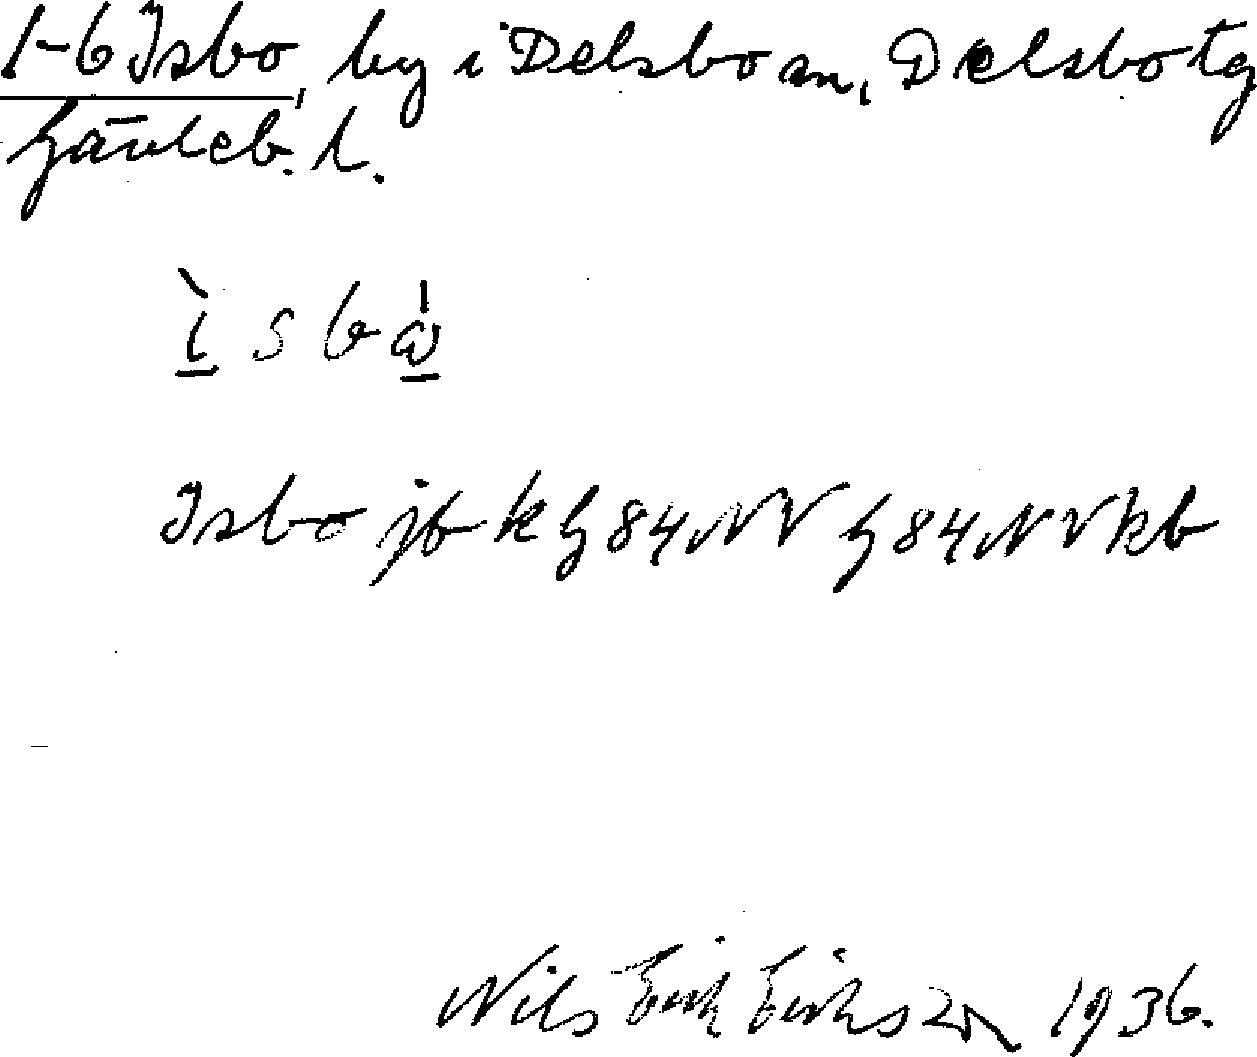 1-6 Isbo, by i Delsbo sn, Delsbo tg
Gävleb. l.
i s b ω
Isbo jb k G 84 NV G 84 NV kb
Nils Erik Erikszon 1936.